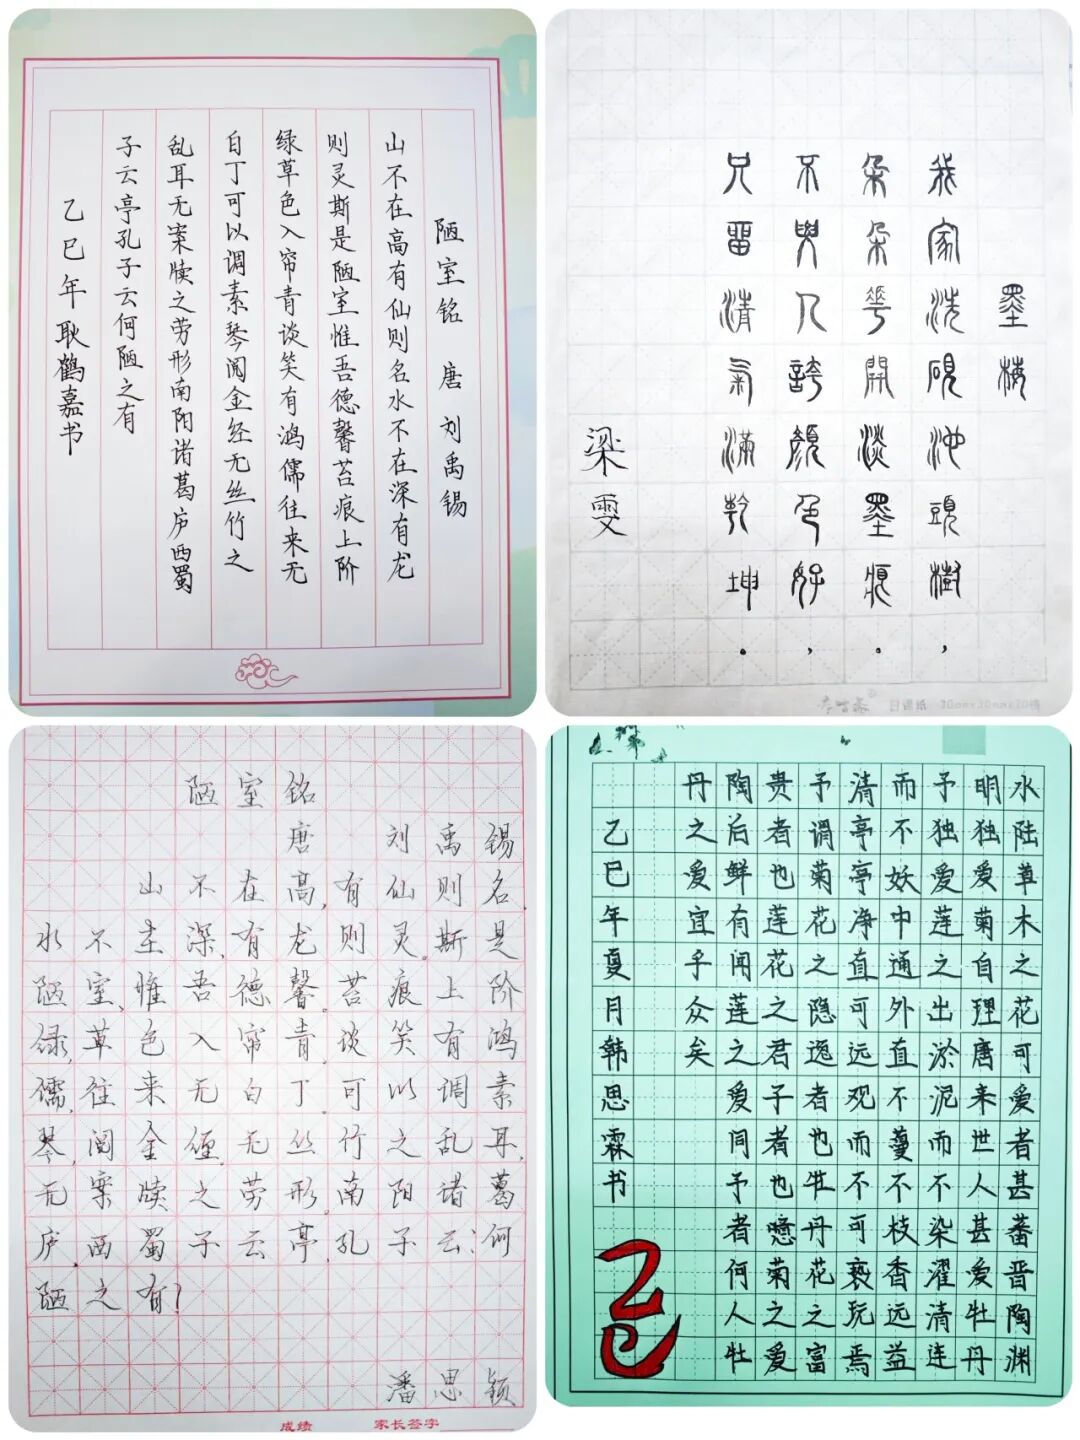 陋室铭 唐 刘禹锡
山不在高有仙则名水不在深有龙
则灵斯是陋室惟吾德馨苔痕上阶
绿草色入帘青谈笑有鸿儒往来无
白丁可以调素琴阅金经无丝竹之
乱耳无案牍之劳形南阳诸葛庐西蜀
子云亭孔子云何陋之有
乙巳年耿鹤嘉书
墨梅
我家洗硯池頭樹，
朵朵花開淡墨痕。
不與人誇顏色好，
只留清氣滿乾坤。
梁雯
陋室铭
唐 刘禹锡
山不在高，有仙则名。
水不在深，有龙则灵。斯是
陋室，惟吾德馨。苔痕上阶
绿，草色入帘青。谈笑有鸿
儒，往来无白丁。可以调素
琴，阅金经。无丝竹之乱耳，
无案牍之劳形。南阳诸葛
庐，西蜀子云亭。孔子云：何
陋之有？
潘思颖
成绩 家长签字
水陆草木之花可爱者甚蕃晋陶渊
明独爱菊自理唐来世人甚爱牡丹
予独爱莲之出淤泥而不染濯清连
而不妖中通外直不蔓不枝香远益
清亭亭净直可远观而不可亵玩焉
予谓菊花之隐逸者也牡丹花之富
贵者也莲花之君子者也噫菊之爱
陶后鲜有闻莲之爱同予者何人牡
丹之爱宜乎众矣
乙巳年夏月韩思霖书
乙巳